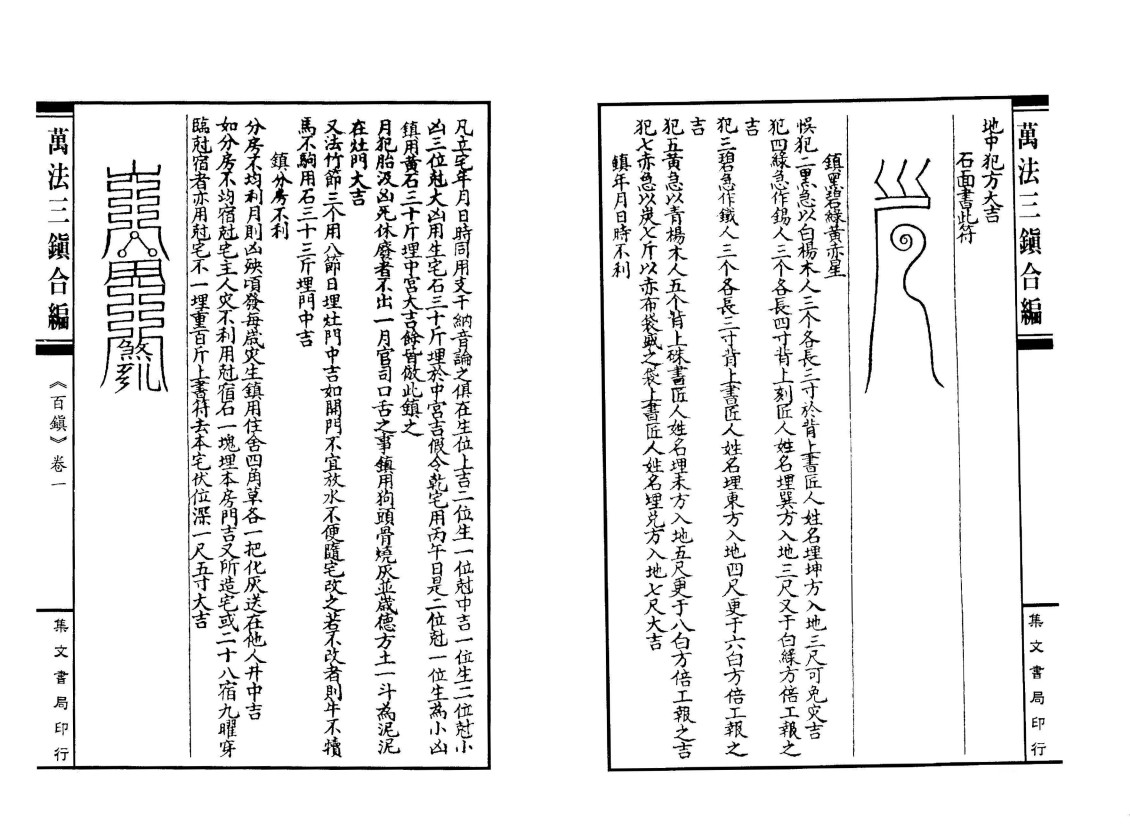 萬法三鎮合編
集文書局印行
地中犯方大吉
石面書此符
鎮黑碧綠黃赤星
悞犯二黑急以白楊木人三个各長三寸於背上書匠人姓名埋坤方入地三尺可免灾吉
犯四綠急作錫人三个各長四寸背上刻匠人姓名埋巽方入地三尺又于白綠方倍工報之
吉
犯三碧急作鐵人三个各長三寸背上書匠人姓名埋東方入地四尺更于六白方倍工報之
吉
犯五黃急以青楊木人五个背上硃書匠人姓名埋未方入地五尺更于八白方倍工報之吉
犯七赤急以炭七斤以赤布袋盛之袋上書匠人姓名埋兌方入地七尺大吉
鎮年月日時不利
凡立宅年月日時同用支干納音論之俱在生位上吉二位生一位尅中吉一位生二位尅小
凶三位尅大凶用生宅石三十斤埋於中宮吉假令乾宅用丙午日是二位尅一位生為小凶
鎮用黃石三十斤埋中宮大吉餘皆倣此鎮之
月犯胎沒凶死休廢者不出一月官司口舌之事鎮用狗頭骨燒灰並歲德方土一斗為泥泥
在灶門大吉
又法竹節三个用八節日埋灶門中吉如開門不宜放水不便隨宅改之若不改者則牛不犢
馬不駒用石三十三斤埋門中吉
鎮分房不利
分房不均利月則凶殃頃發每歲灾生鎮用住舍四角草各一把化灰送在他人井中吉
如分房不均宿尅宅主人灾不利用尅宿石一塊埋本房門吉又所造宅或二十八宿九曜穿
臨尅宿者亦用尅宅不一埋重百斤上書符去本宅伏位深一尺五寸大吉
煞
萬法三鎮合編
《百鎮》卷一
集文書局印行